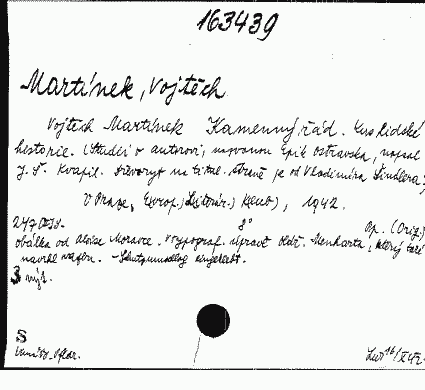 163439
Martínek, Vojtěch
Vojtěch Martínek Kamenný řád. Kus lidské
historie. (Studii o autorovi, nazvanou Epik Ostravska, napsal
J. Š. Kvapil. Dřevoryt na titul. straně je od Vladimíra Šindlera.)
V Praze, Evrop. Literár. Klub), 1942.
247 8° Op. (Orig.)
obálka od Aloise Moravce. V typograf. úpravě Oldř. Menharta, který také
navrhl vazbu. - Schutzumschlag eingeklebt.
3 výt.
S